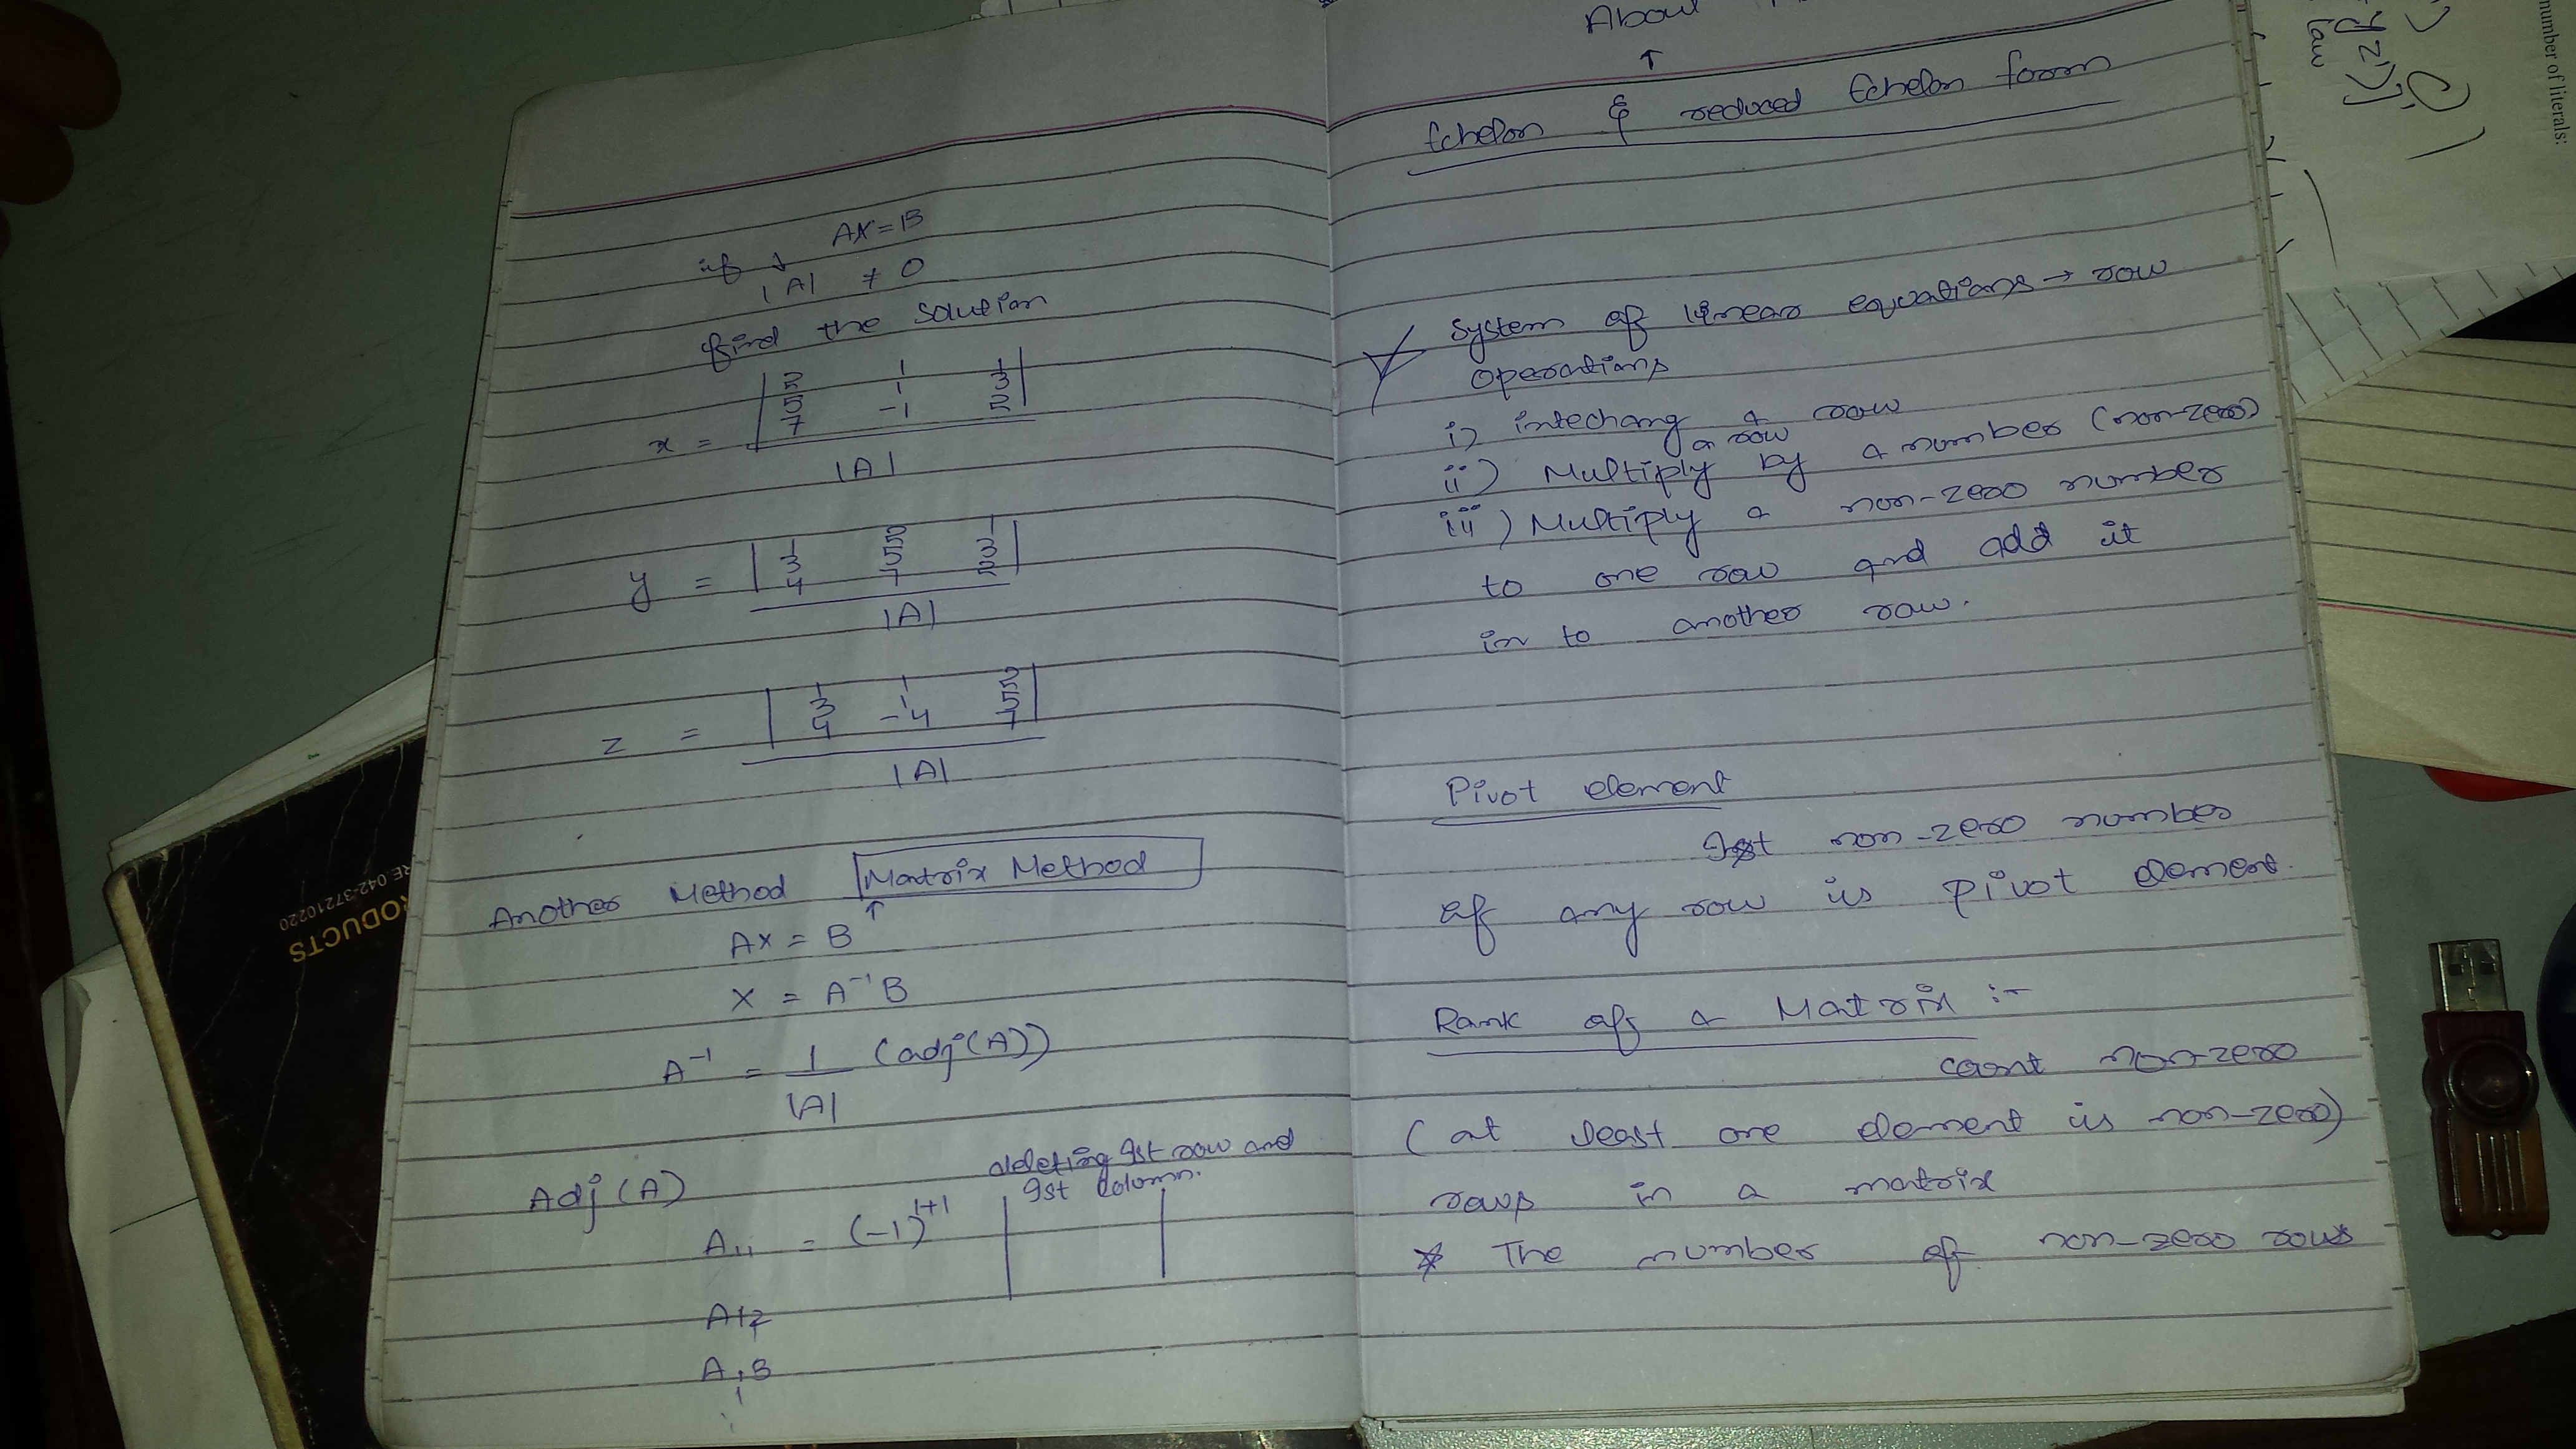 AX=B
if ↓
|A| ≠ 0
find the solution
x = | 2 1 1 |
| 5 1 3 |
| 7 -1 2 |
|A|
y = | 1 2 1 |
| 3 5 3 |
| 4 7 2 |
|A|
z = | 1 1 2 |
| 3 1 5 |
| 4 -4 7 |
|A|
Another Method Matrix Method
↑
AX = B
X = A⁻¹B
A⁻¹ = 1 (adj(A))
|A|
Adj (A)
deleting 1st row and
1st column.
A₁₁ = (-1)¹⁺¹ | |
A12
A13
About
↑
Echelon & reduced Echelon form
System of linear equations → row
operations
i) intechang a row
a row
ii) Multiply by a number (non-zero)
iii) Multiply a non-zero number
to one row and add it
in to another row.
Pivot element
1st non-zero number
of any row is pivot element.
Rank of a Matrix :-
count non-zero
(at least one element is non-zero)
rows in a matrix
* The number of non-zero rows
number of literals:
Law
RE 042-37210220
ODUCTS